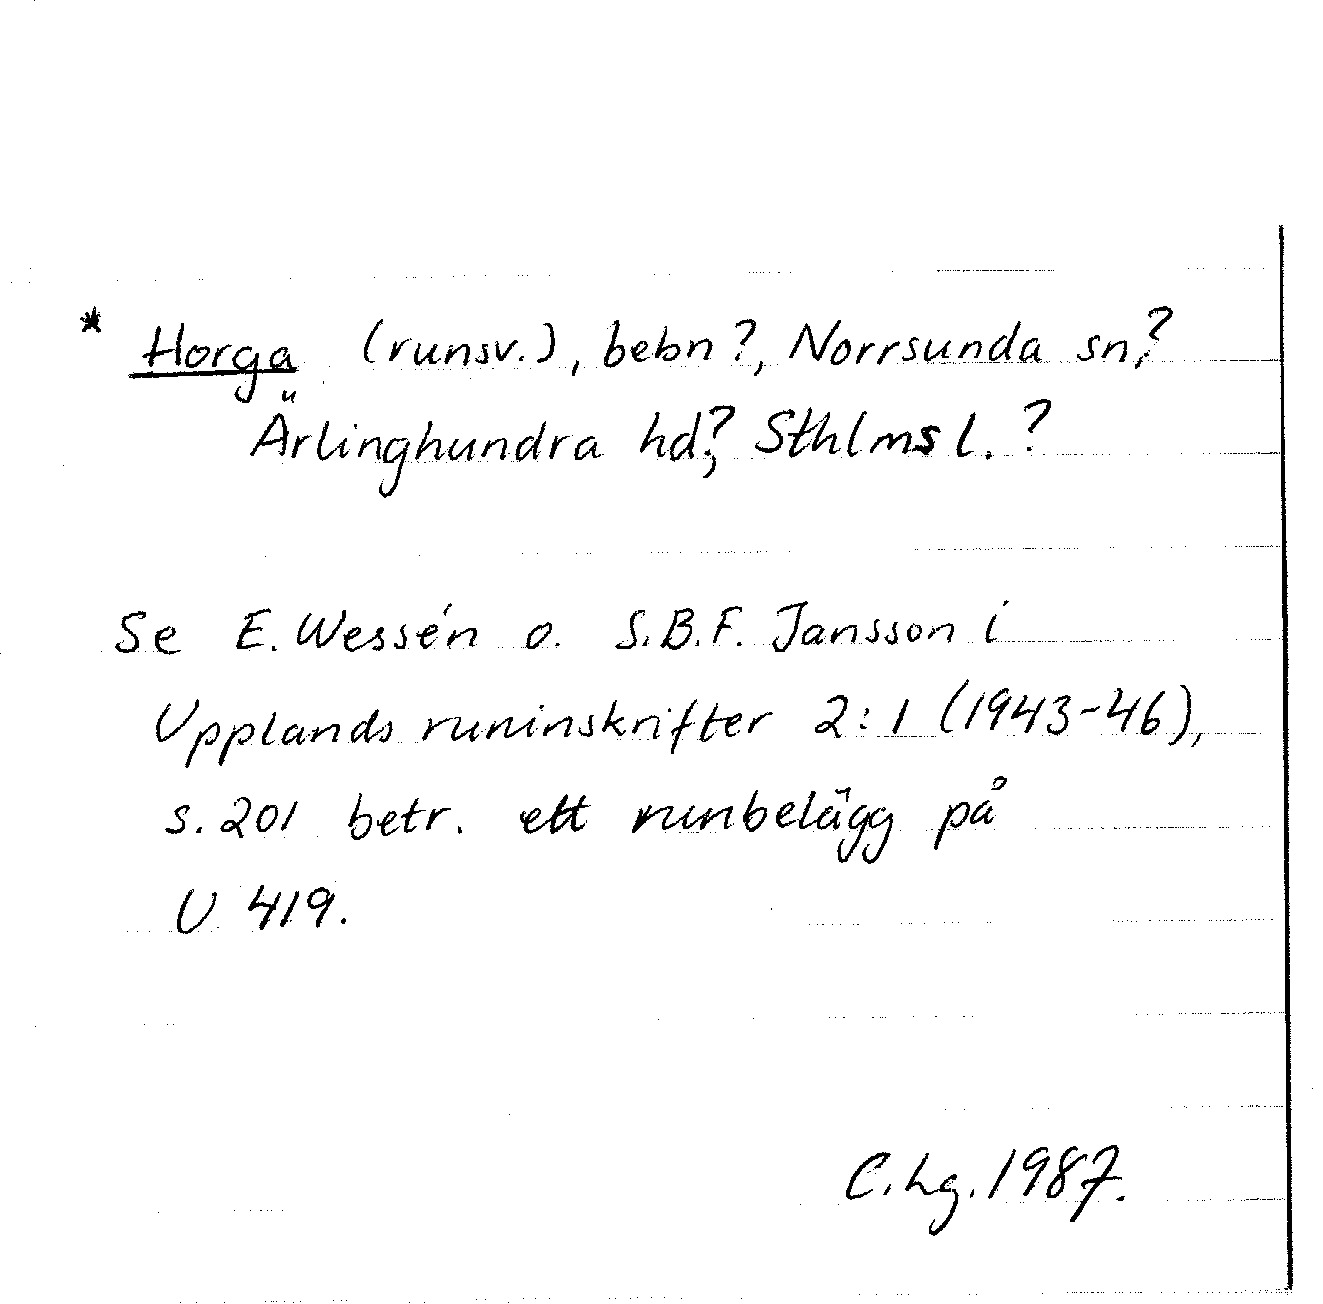 * Horga (runsv.), bebn?, Norrsunda sn?
Ärlinghundra hd?, Sthlms l. ?
Se E. Wessén o. S.B.F. Jansson i
Upplands runinskrifter 2:1 (1943-46),
s. 201 betr. ett runbelägg på
U 419.
C. Lg. 1987.